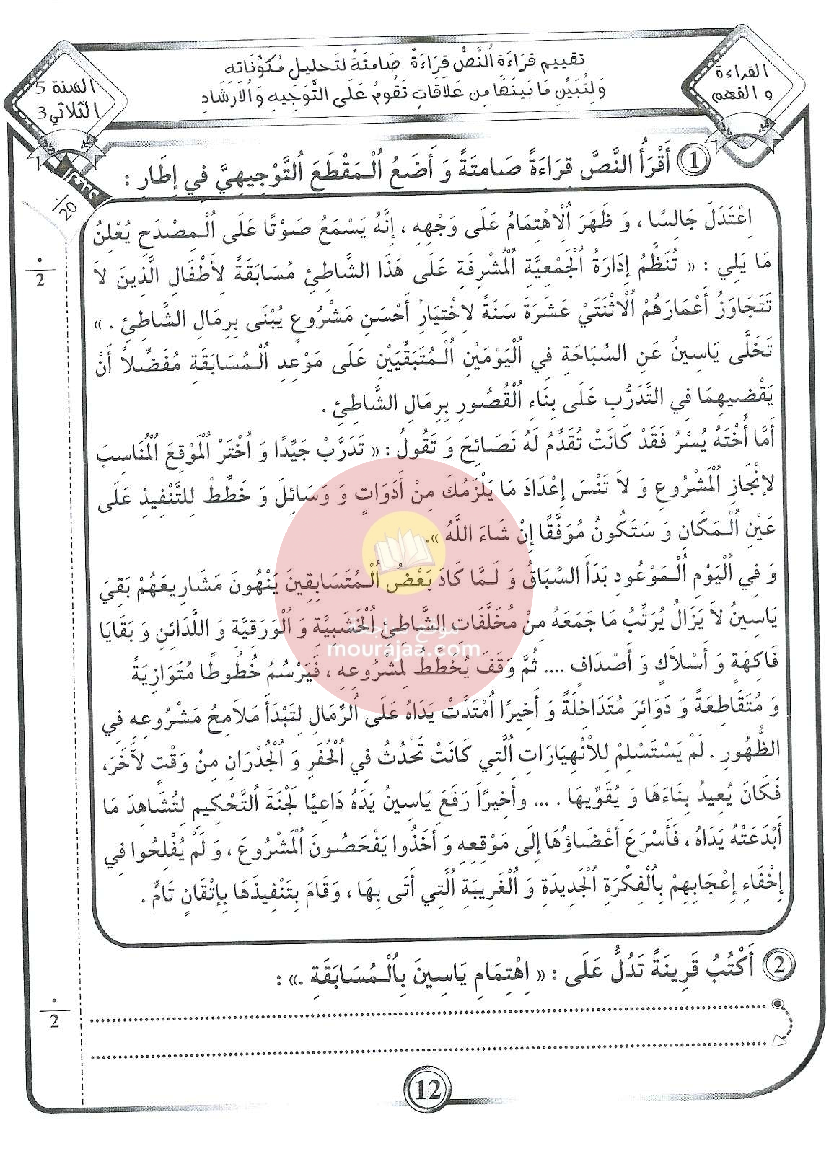 القراءة
و الفهم
تقييم قراءة النص قراءة صامتة لتحليل مكوناته
ولتبين ما بينها من علاقات تقوم على التوجيه والإرشاد
السنة 5
الثلاثي 3
20/
1 أَقْرَأُ النَّصَّ قِرَاءَةً صَامِتَةً وَ أَضَعُ الْمَقْطَعَ التَّوْجِيهِيَّ فِي إِطَارٍ :
اِعْتَدَلَ جَالِسًا ، وَ ظَهَرَ الْاهْتِمَامُ عَلَى وَجْهِهِ ، إِنَّهُ يَسْمَعُ صَوْتًا عَلَى الْمِصْدَحِ يُعْلِنُ
مَا يَلِي : « تُنَظِّمُ إِدَارَةُ الْجَمْعِيَّةِ الْمُشْرِفَةِ عَلَى هَذَا الشَّاطِئِ مُسَابَقَةً لِأَطْفَالِ الَّذِينَ لَا
تَتَجَاوَزُ أَعْمَارَهُمْ الْاثْنَتَيْ عَشَرَةَ سَنَةً لِاخْتِيَارِ أَحْسَنِ مَشْرُوعٍ يُبْنَى بِرِمَالِ الشَّاطِئِ . »
تَخَلَّى يَاسِينُ عَنِ السِّبَاحَةِ فِي الْيَوْمَيْنِ الْمُتَبَقِّيَيْنِ عَلَى مَوْعِدِ الْمُسَابَقَةِ مُفَضِّلاً أَنْ
يَقْضِيهِمَا فِي التَّدَرُّبِ عَلَى بِنَاءِ الْقُصُورِ بِرِمَالِ الشَّاطِئِ .
أَمَّا أُخْتُهُ يُسْرُ فَقَدْ كَانَتْ تُقَدِّمُ لَهُ نَصَائِحَ وَ تَقُولُ : « تَدَرَّبْ جَيِّدًا وَ اخْتَرْ الْمَوْقِعَ الْمُنَاسِبَ
لِإنْجَازِ الْمَشْرُوعِ وَ لَا تَنْسَ إِعْدَادَ مَا يَلْزَمُكَ مِنْ أَدَوَاتٍ وَ وَسَائِلَ وَ خَطِّطْ لِلتَّنْفِيذِ عَلَى
عَيْنِ الْمَكَانِ وَ سَتَكُونُ مُوَفَّقًا إِنْ شَاءَ اللَّهُ ».
وَ فِي الْيَوْمِ الْمَوْعُودِ بَدَأَ السِّبَاقُ وَ لَمَّا كَادَ بَعْضُ الْمُتَسَابِقِينَ يَنْهُونَ مَشَارِيعَهُمْ بَقِيَ
يَاسِينُ لَا يَزَالُ يُرَتِّبُ مَا جَمَعَهُ مِنْ مُخَلَّفَاتِ الشَّاطِئِ الْخَشَبِيَّةِ وَ الْوَرَقِيَّةِ وَ اللَّدَائِنِ وَ بَقَايَا
فَاكِهَةٍ وَ أَسْلَاكٍ وَ أَصْدَافٍ .... ثُمَّ وَقَفَ يُخَطِّطُ لِمَشْرُوعِهِ ، فَيَرْسُمُ خُطُوطًا مُتَوَازِيَةً
وَ مُتَقَاطِعَةً وَ دَوَائِرَ مُتَدَاخِلَةً وَ أَخِيرًا امْتَدَّتْ يَدَاهُ عَلَى الرِّمَالِ لِتَبْدَأَ مَلَامِحُ مَشْرُوعِهِ فِي
الظُّهُورِ . لَمْ يَسْتَسْلِمْ لِلْانْهِيَارَاتِ الَّتِي كَانَتْ تَحْدُثُ فِي الْحُفَرِ وَ الْجُدْرَانِ مِنْ وَقْتٍ لآخَرَ،
فَكَانَ يُعِيدُ بِنَاءَهَا وَ يُقَوِّيهَا . ... وأَخِيرًا رَفَعَ يَاسِينُ يَدَهُ دَاعِيًا لَجْنَةَ التَّحْكِيمِ لِتُشَاهِدَ مَا
أَبْدَعَتْهُ يَدَاهُ ، فَأَسْرَعَ أَعْضَاؤُهَا إِلَى مَوْقِعِهِ وَ أَخَذُوا يَفْحَصُونَ الْمَشْرُوعَ ، وَ لَمْ يُفْلِحُوا فِي
إِخْفَاءِ إِعْجَابِهِمْ بِالْفِكْرَةِ الْجَدِيدَةِ وَ الْغَرِيبَةِ الَّتِي أَتَى بِهَا ، وَقَامَ بِتَنْفِيذِهَا بِإِتْقَانٍ تَامٍّ .
mourajaa.com
2
2 أَكْتُبُ قَرِينَةً تَدُلُّ عَلَى : « اِهْتِمَامِ يَاسِينَ بِالْمُسَابَقَةِ .» :
2
12